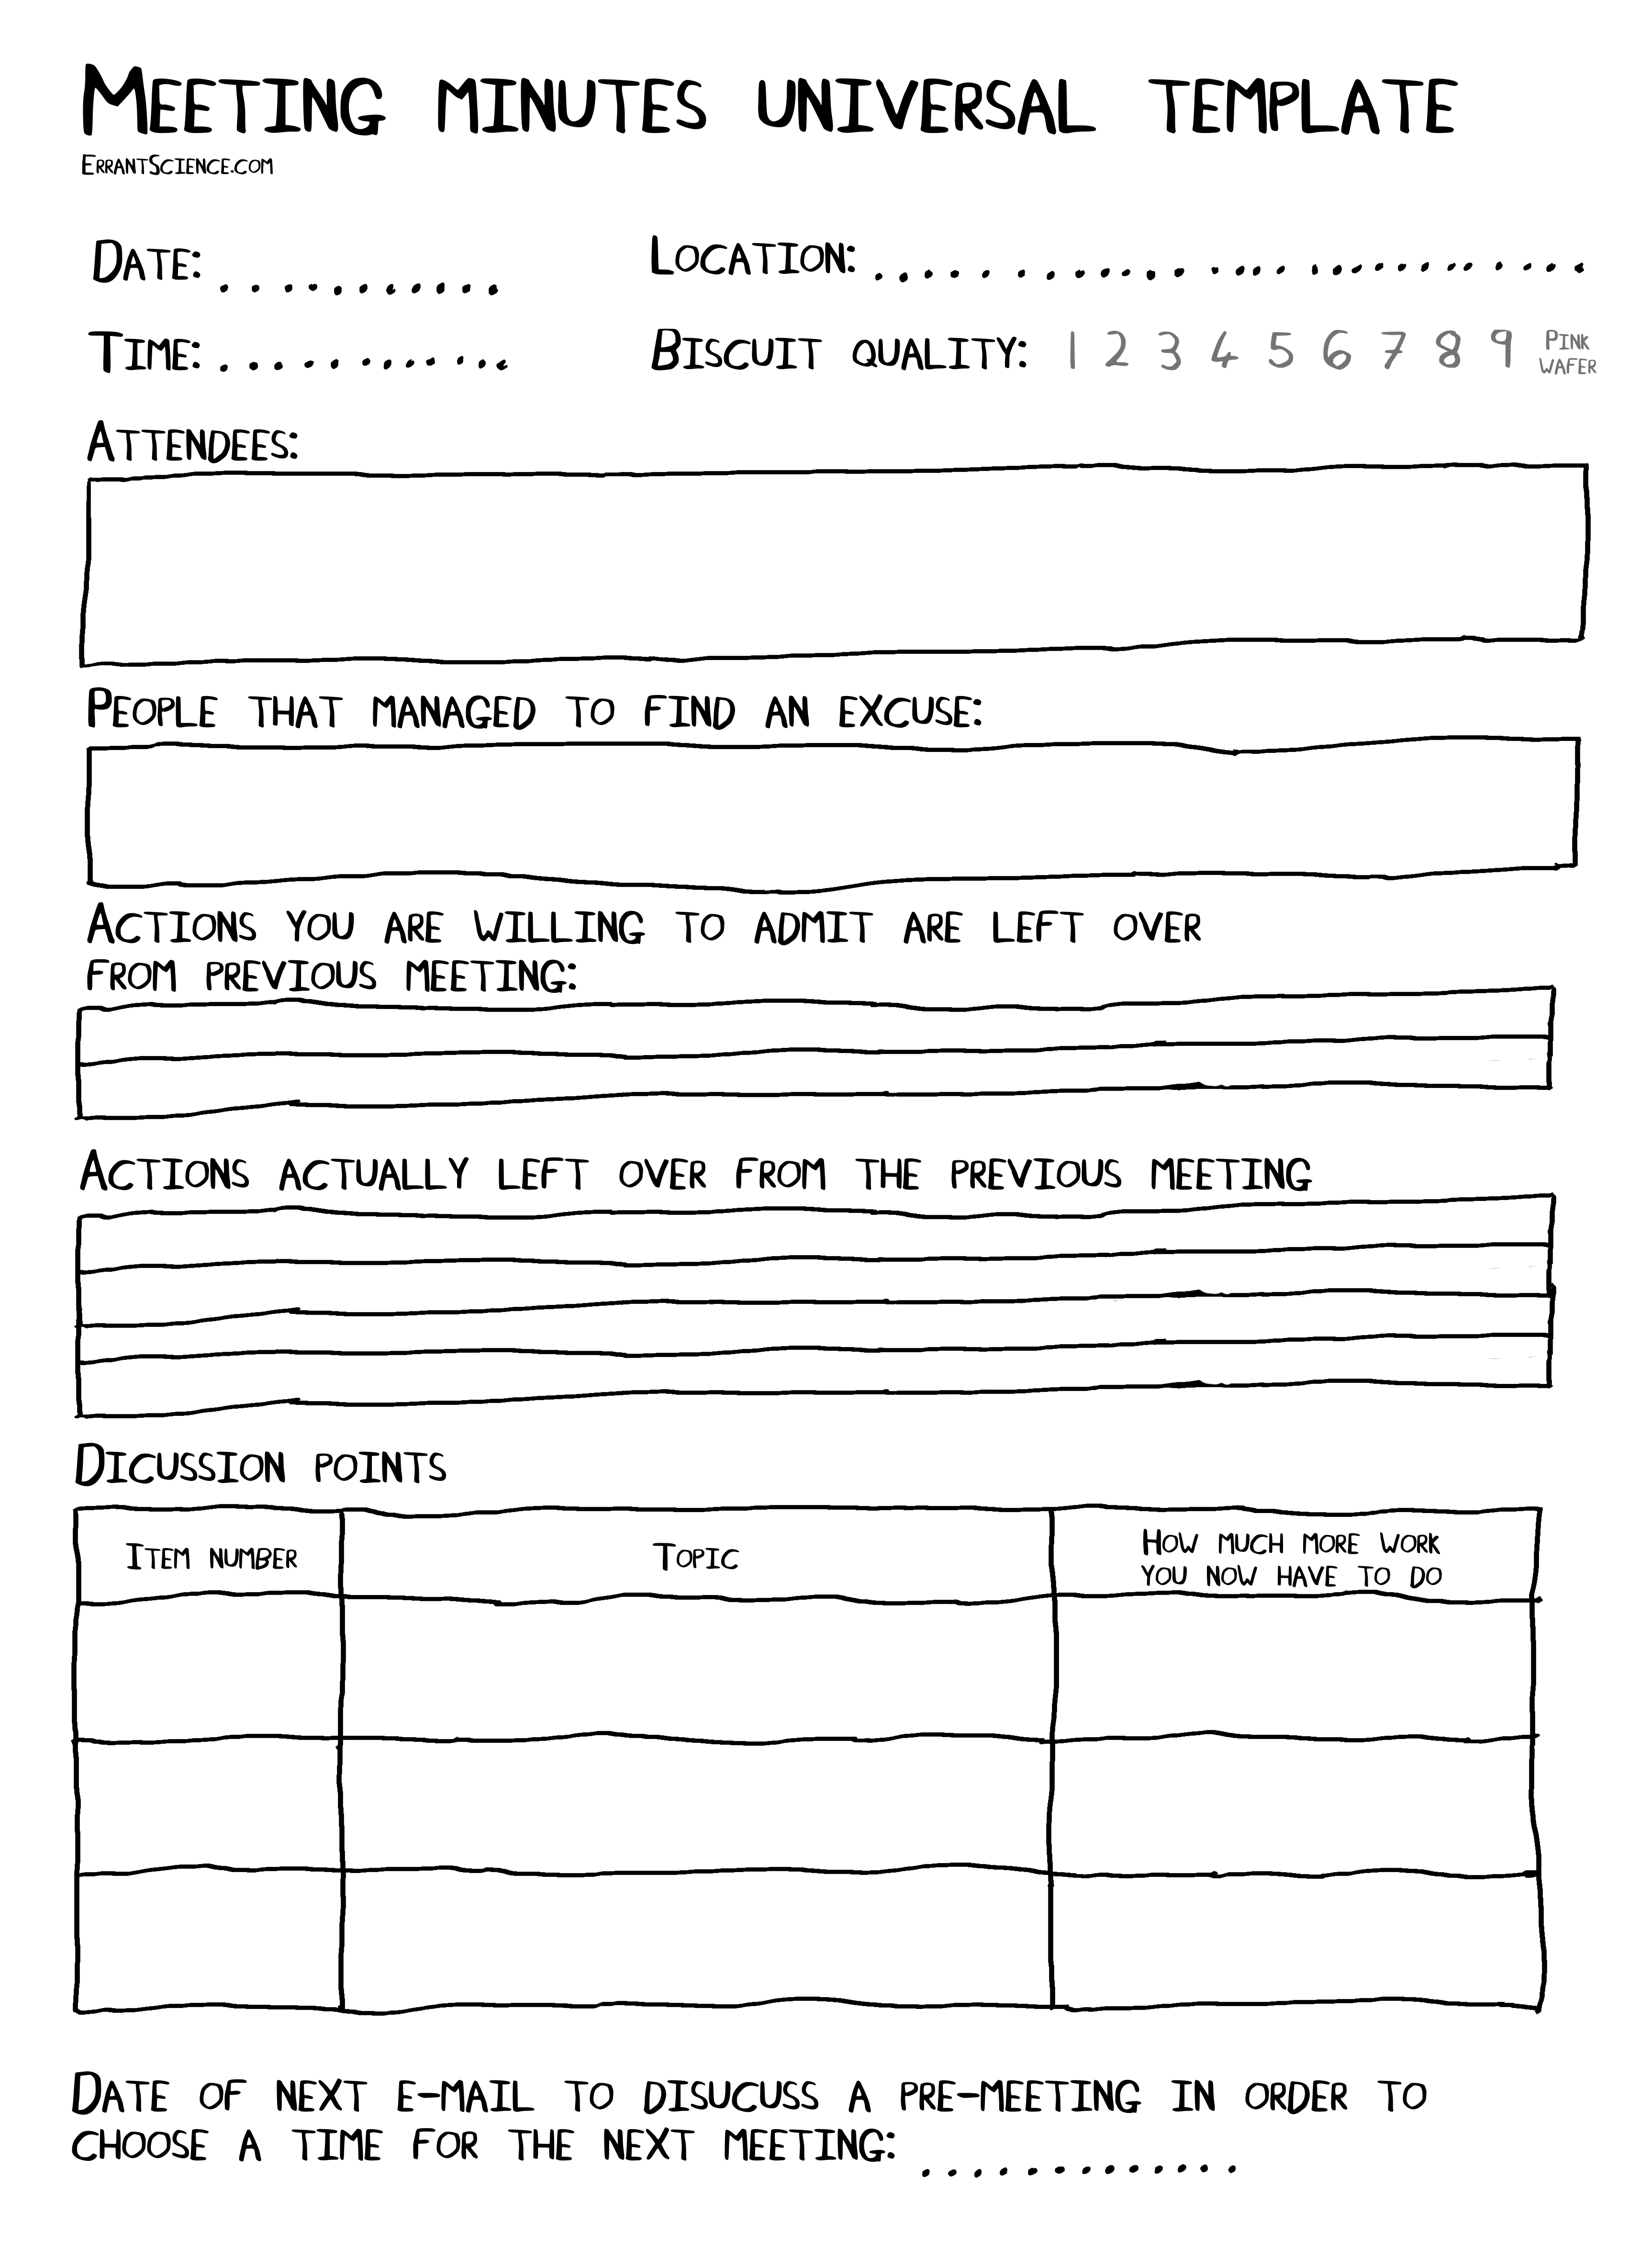 Meeting minutes universal template
ErrantScience.com
Date: Location:
Time: Biscuit quality: 1 2 3 4 5 6 7 8 9 Pink wafer
Attendees:
People that managed to find an excuse:
Actions you are willing to admit are left over
from previous meeting:
Actions actually left over from the previous meeting
Dicussion points
Item number Topic How much more work
you now have to do
Date of next e-mail to disucuss a pre-meeting in order to
choose a time for the next meeting: